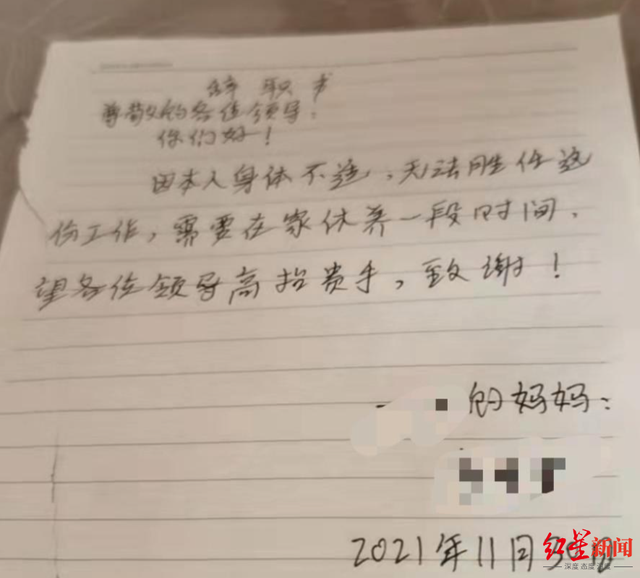 辞职书
尊敬的各位领导：
你们好！
因本人身体不适，无法胜任这
份工作，需要在家休养一段时间，
望各位领导高抬贵手，致谢！
的妈妈：
2021年11月30日
红星新闻
深度 态度 温度